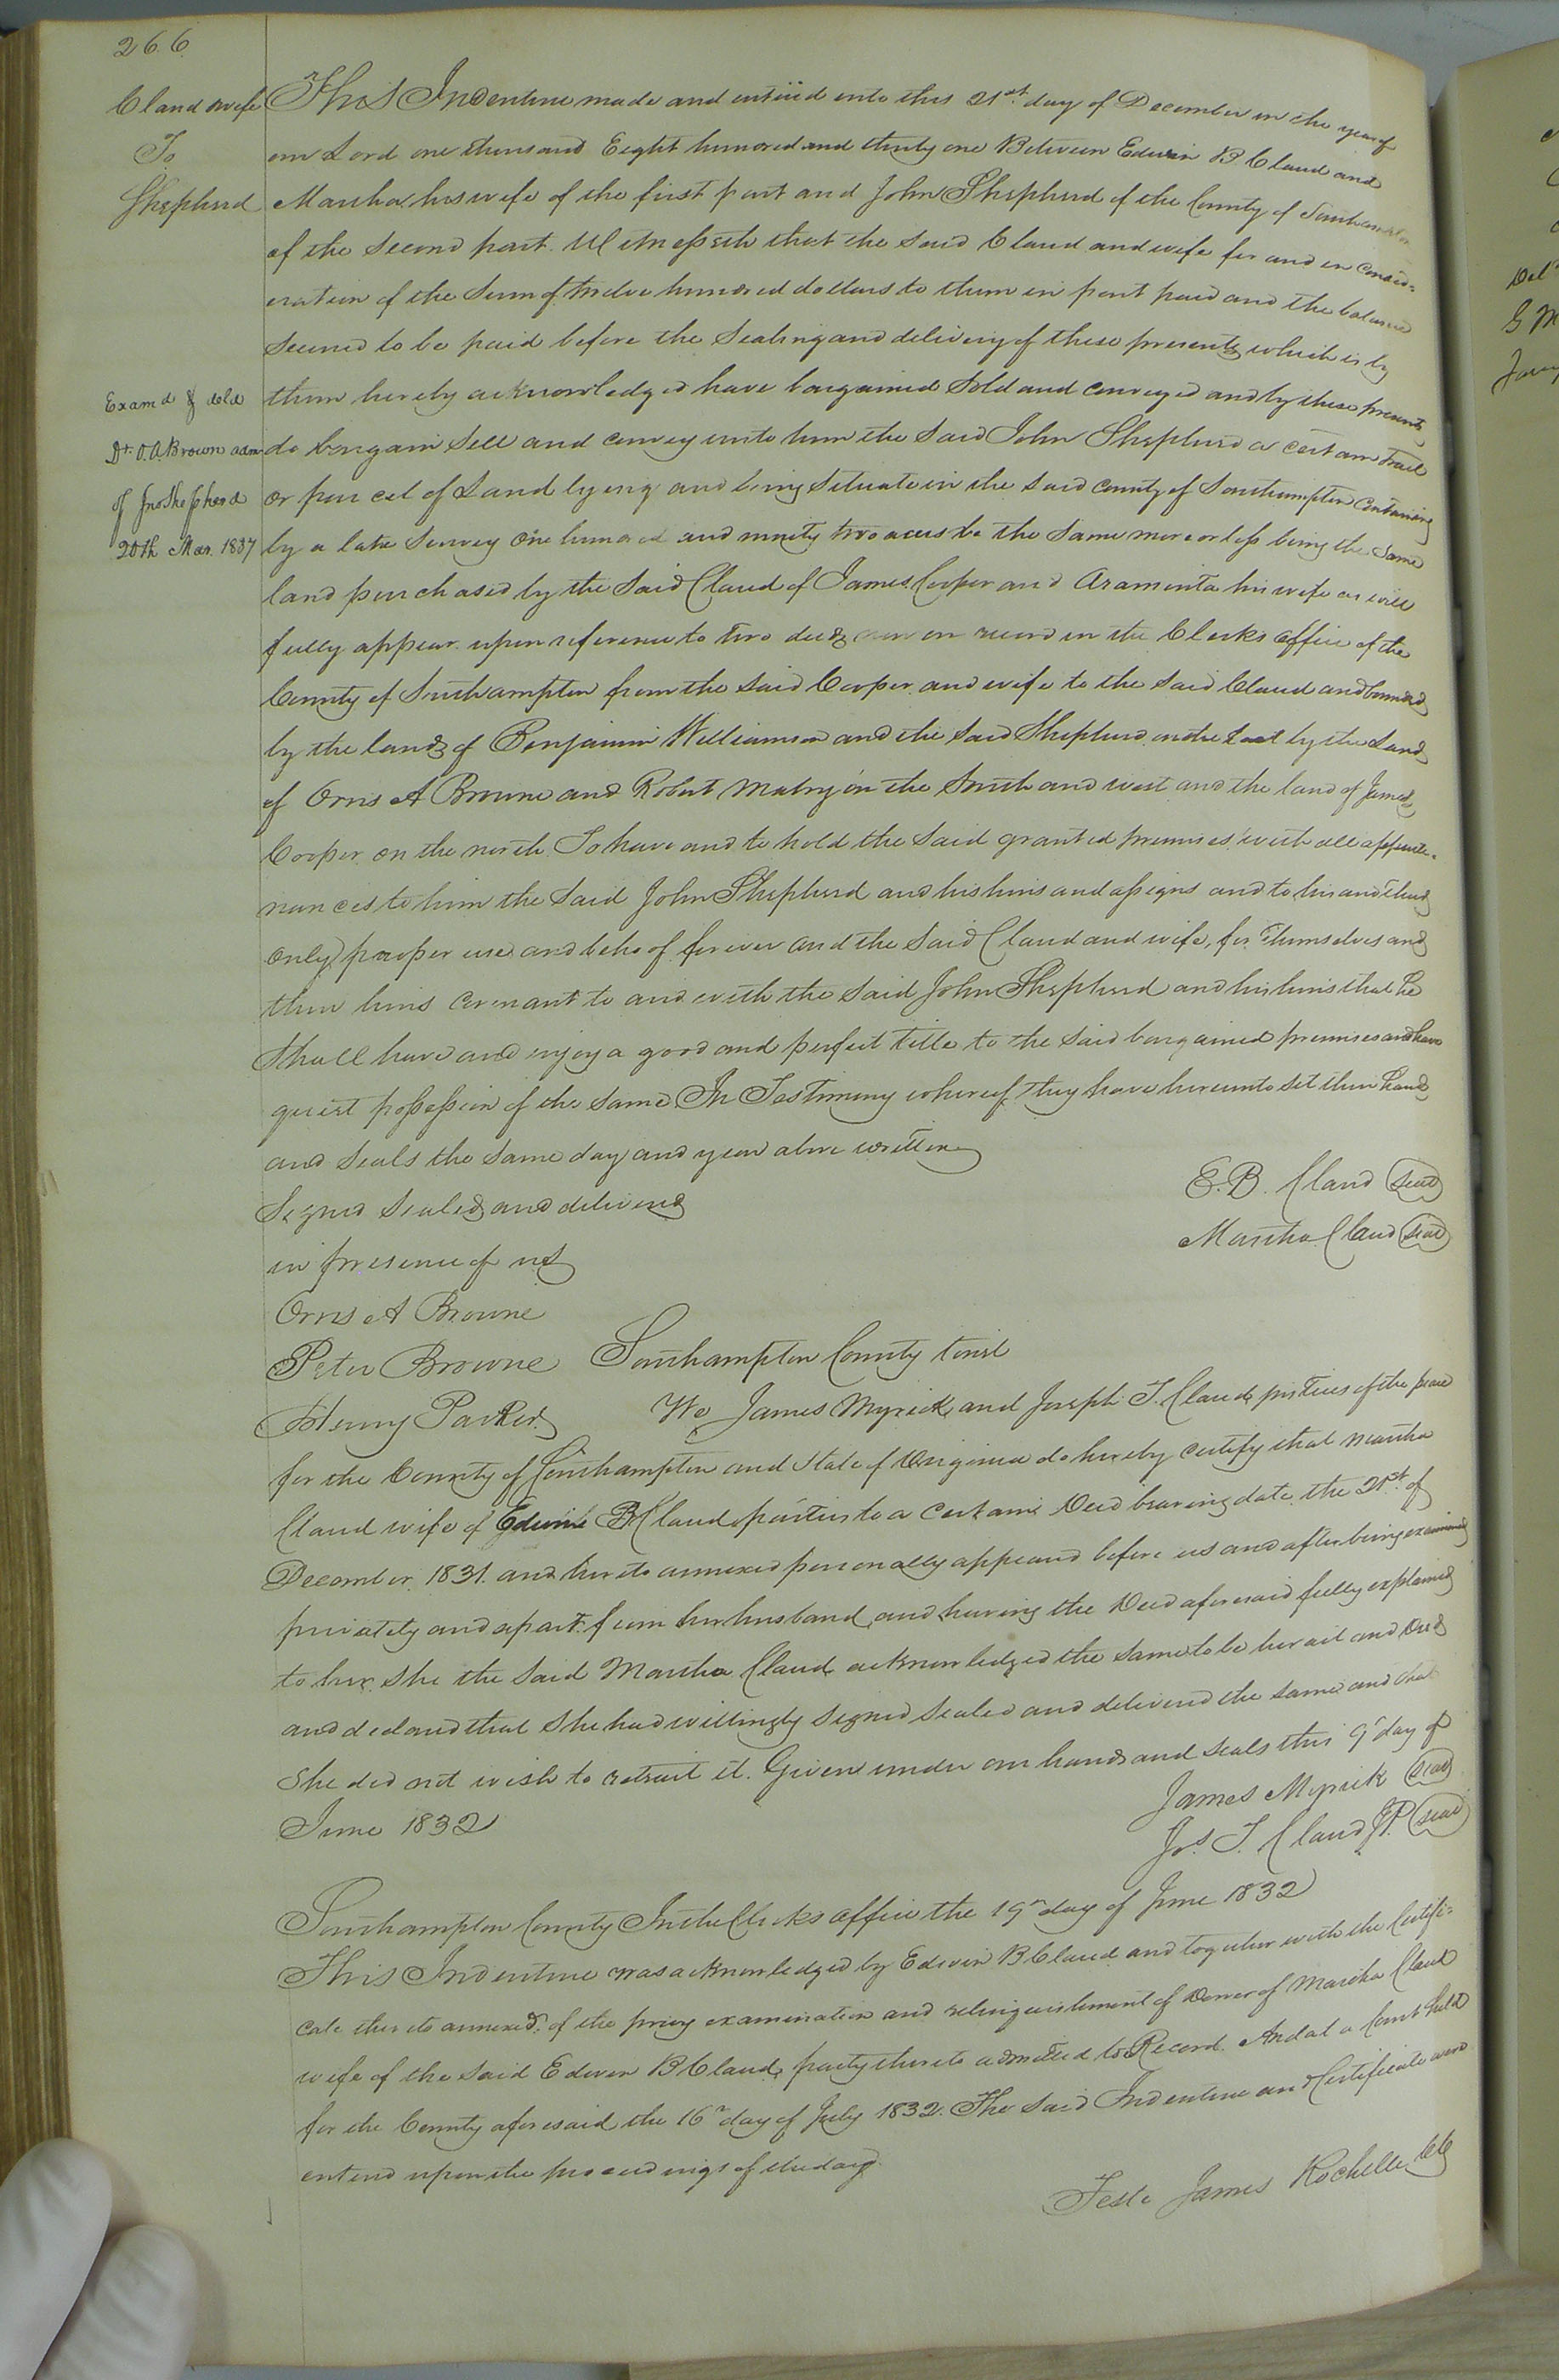 266
Claud & wife
To
Shepherd
Examd & deld
Dr. O.A. Brown adm
of Jno Shepherd
20th Mar. 1837
This Indenture made and entered into this 21st. day of December in the year of
our Lord one thousand Eight hundred and thirty one Between Edwin B Claud and
Martha his wife of the first part and John Shepherd of the County of Southampton
of the Second part. Witnesseth that the said Claud and wife for and in consid=
eration of the Sum of twelve hundred dollars to them in part paid and the balance
secured to be paid before the Sealing and delivery of these presents, which is by
them hereby acknowledged have bargained Sold and conveyed and by these presents,
do bargain Sell and convey unto him the Said John Shepherd a certain tract
or parcel of Land lying and being Situate in the said county of Southampton containing
by a late Survey one hundred and ninety two acres be the Same more or less being the same
land purchased by the Said Claud of James Cooper and Araminta his wife as will
fully appear upon reference to two deeds now on record in the Clerks office of the
County of Southampton from the Said Cooper and wife to the Said Claud and bounded
by the lands of Benjamin Williamson and the Said Shepherd on the East by the Lands
of Orris A Browne and Robert Mabry on the South and west and the land of James
Cooper on the north To have and to hold the Said granted premises with all appurte=
nances to him the Said John Shepherd and his heirs and assigns and to his and their
only proper use and behoof forever and the Said Claud and wife, for themselves and
their heirs covenant to and with the Said John Shepherd and his heirs that he
shall have and enjoy a good and perfect title to the Said bargained premises and have
quiet possession of the same In Testimony whereof they have hereunto set their hands
and Seals the Same day and year above written
E. B. Claud (seal)
Signed Sealed and delivered
Martha Claud (seal)
in presence of us
Orris A Browne
Peter Browne Southampton County towit
Henry Parker We James Myrick and Joseph T. Claud justices of the peace
for the County of Southampton and State of Virginia do hereby certify that Martha
Claud wife of Edwin B Claud parties to a certain Deed bearing date the 21st. of
December 1831. and hereto annexed personally appeared before us and after being examined
privately and apart from her husband, and having the Deed aforesaid fully explained
to her. She the Said Martha Claud acknowledged the same to be her act and Deed
and declared that She had willingly Signed Sealed and delivered the same and that
She did not wish to retract it. Given under our hands and Seals this 9th day of
June 1832
James Myrick (seal)
Jos. T. Claud J.P. (seal)
Southampton County In the Clerks office the 19th day of June 1832
This Indenture was acknowledged by Edwin B Claud and together with the Certifi=
cate thereto annexed of the privy examination and relinquishment of Dower of Martha Claud
wife of the said Edwin B Claud, party thereto admitted to Record. And at a Court held
for the County aforesaid the 16th day of July 1832. The Said Indenture and Certificate were
entered upon the proceedings of the day.
Teste James Rochelle CC